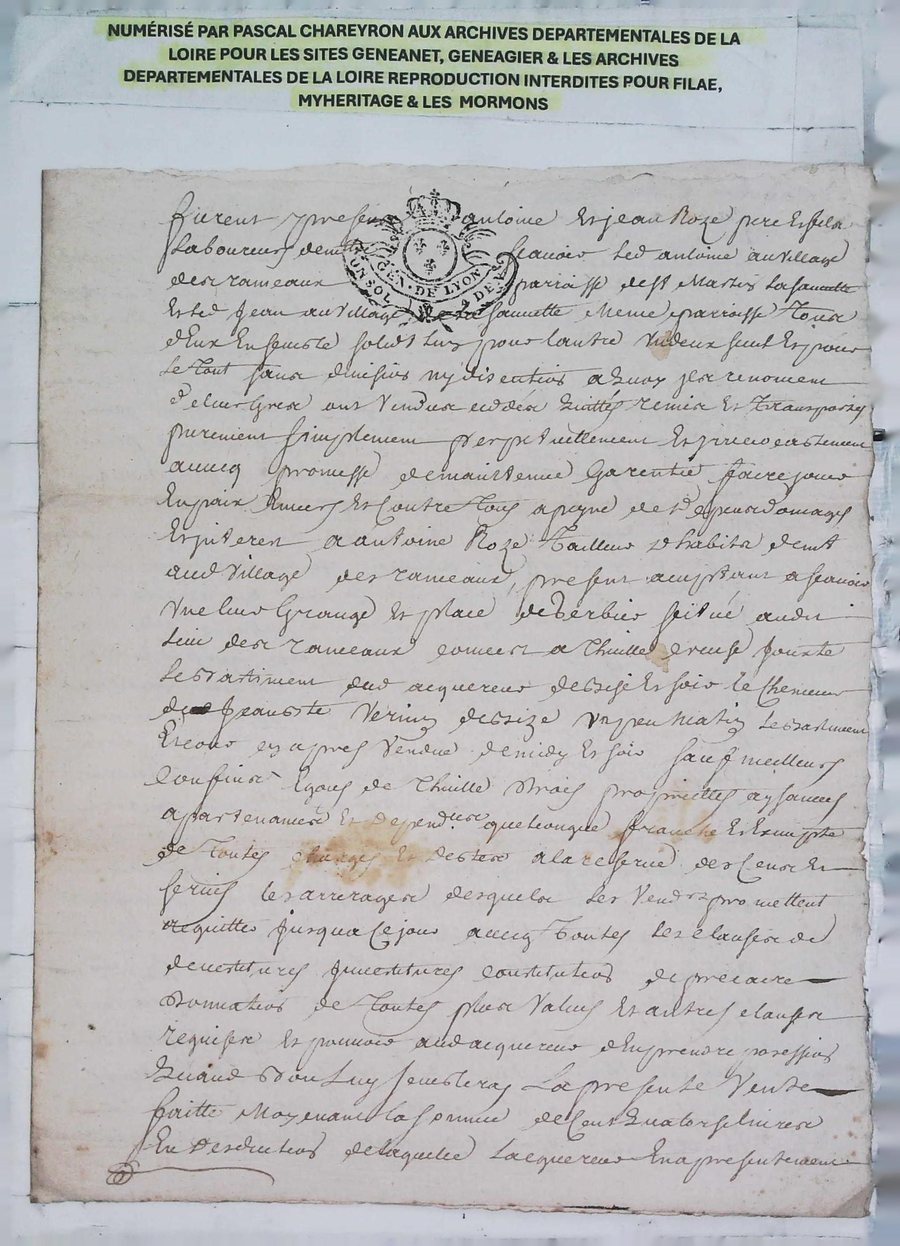 NUMÉRISÉ PAR PASCAL CHAREYRON AUX ARCHIVES DEPARTEMENTALES DE LA
LOIRE POUR LES SITES GENEANET, GENEAGIER & LES ARCHIVES
DEPARTEMENTALES DE LA LOIRE REPRODUCTION INTERDITES POUR FILAE,
MYHERITAGE & LES MORMONS
furent presens antoine Et jean Roze pere Et fils
Laboureurs scauoir Led antoine au village
des rameaux parroisse de st Martin La sauuetté
Et led Jean au village sauuette Meme parroisse Tous
GEN · DE LYON
UN SOL DEN
deux Ensemble solid Lun pour lautre un deux seul Et pour
Le Tout sans diuision ny disention a quoy ils renoncent
ont Vendus ceddés quittés remis Et Transportés
purement simplement perpetuellement Et jrreuocablement
auecq promesse de maintenue Garentie faire jouir
En paix Enuers Et Contre Tous a peyne de domages
Et jnterets a antoine Roze Tailleur dhabits demt
aud Village des rameaux, present acceptant a scauoir
Vne leur Grange Et place scitué audit
Lieu des rameaux a Thuille creuse jouxte
Le bastiment dud acquereur de bize Et soir le Chemin
de Jean bte Verin de bize Vn peu Matin Le bastiment
Et cour cy apres Vendue de midy Et soir sauf meilleurs
Confins de Thuille Droits proprietés aysances
apartenances Et Depend.ces quelconque franche Et Exempte
de Toutes charges Et debtes a la reserue des Cens Et
seruis les arrerages desquels les Vend.rs promettent
acquitter jusqua Ce jour auecq Toutes Les clauses de
deuestitures jnuestitures constitution de precaire
Donnation de Toutes plus Values Et autres clauses
requises Et pouuoir aud acquereur dEn prendre possession
Quand Bon Luy semblera La presente Vente
faitte Moyenant la somme de Cent quatorse Liures
En Deduction de laquelle Lacquereur En a presentement